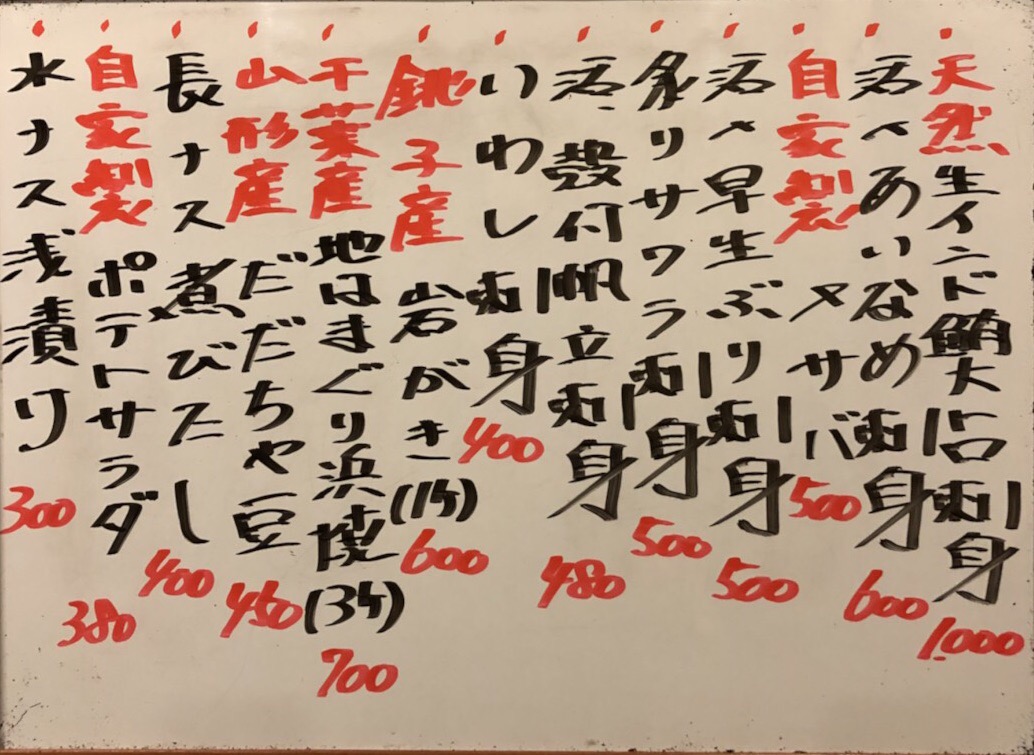 天然生インド鮪大トロ刺身 1.000
活〆あいなめ刺身 600
自家製〆サバ 500
活〆早生ぶり刺身 500
炙りサワラ刺身 500
活殻付帆立刺身 480
いわし刺身 400
銚子産岩がき(1ケ) 600
千葉産地はまぐり浜焼(3ケ) 700
山形産だだちゃ豆 450
長ナス煮びたし 400
自家製ポテトサラダ 380
水ナス浅漬り 300